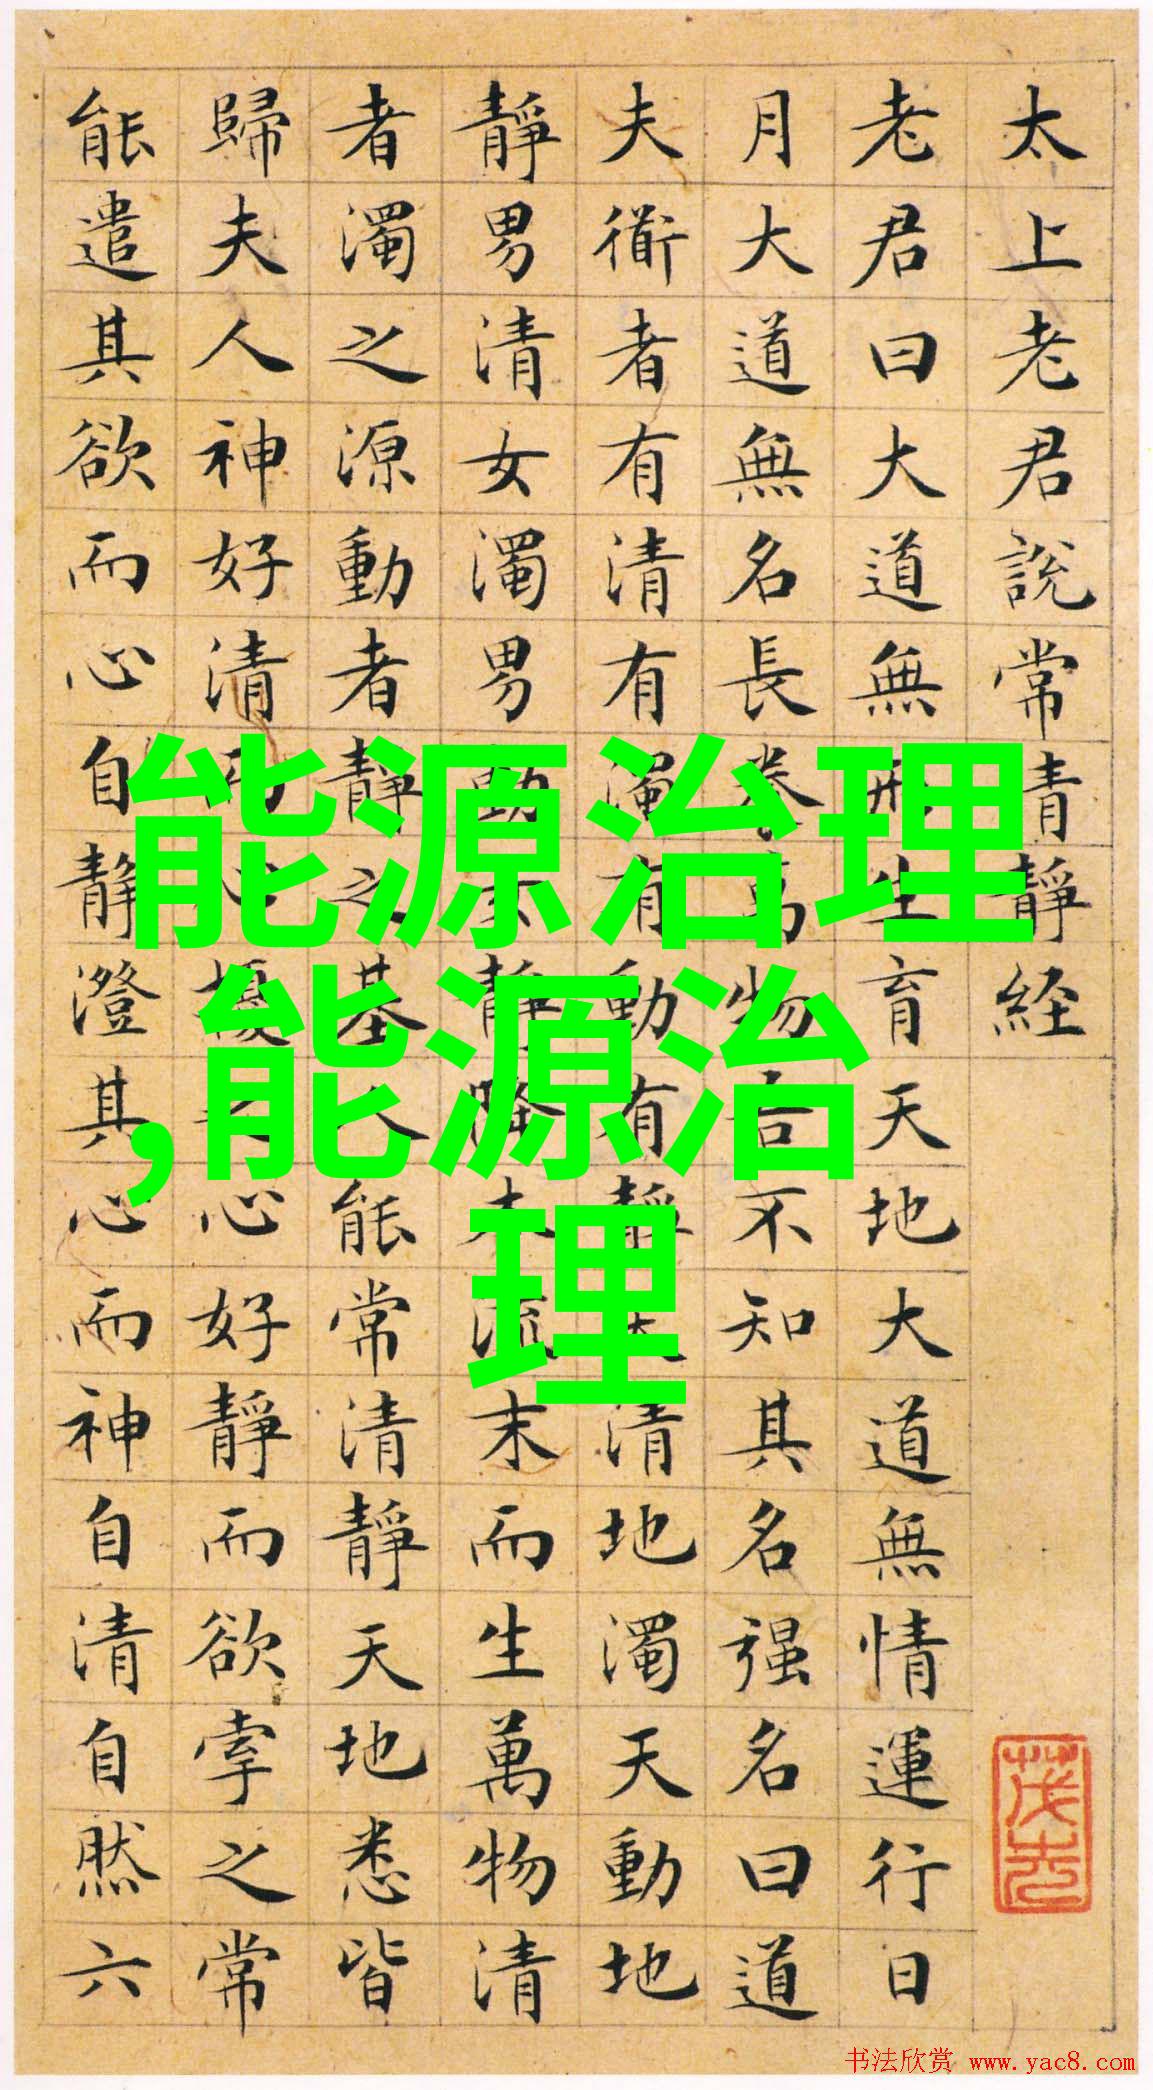 太上老君說常清靜経
老君曰大道無形生育天地大道無情運行日
月大道無名長養萬物吾不知其名强名曰道
夫衜者有清有濁有動有靜天清地濁天動地
靜男清女濁男動女靜降本流末而生萬物清
者濁之源動者靜之基人能常清靜天地悉皆
歸夫人神好清而心擾之心好靜而欲牽之常
能遣其欲而心自靜澄其心而神自清自然六
能源治理
,能源治
理
书法欣赏 www.yac8.com